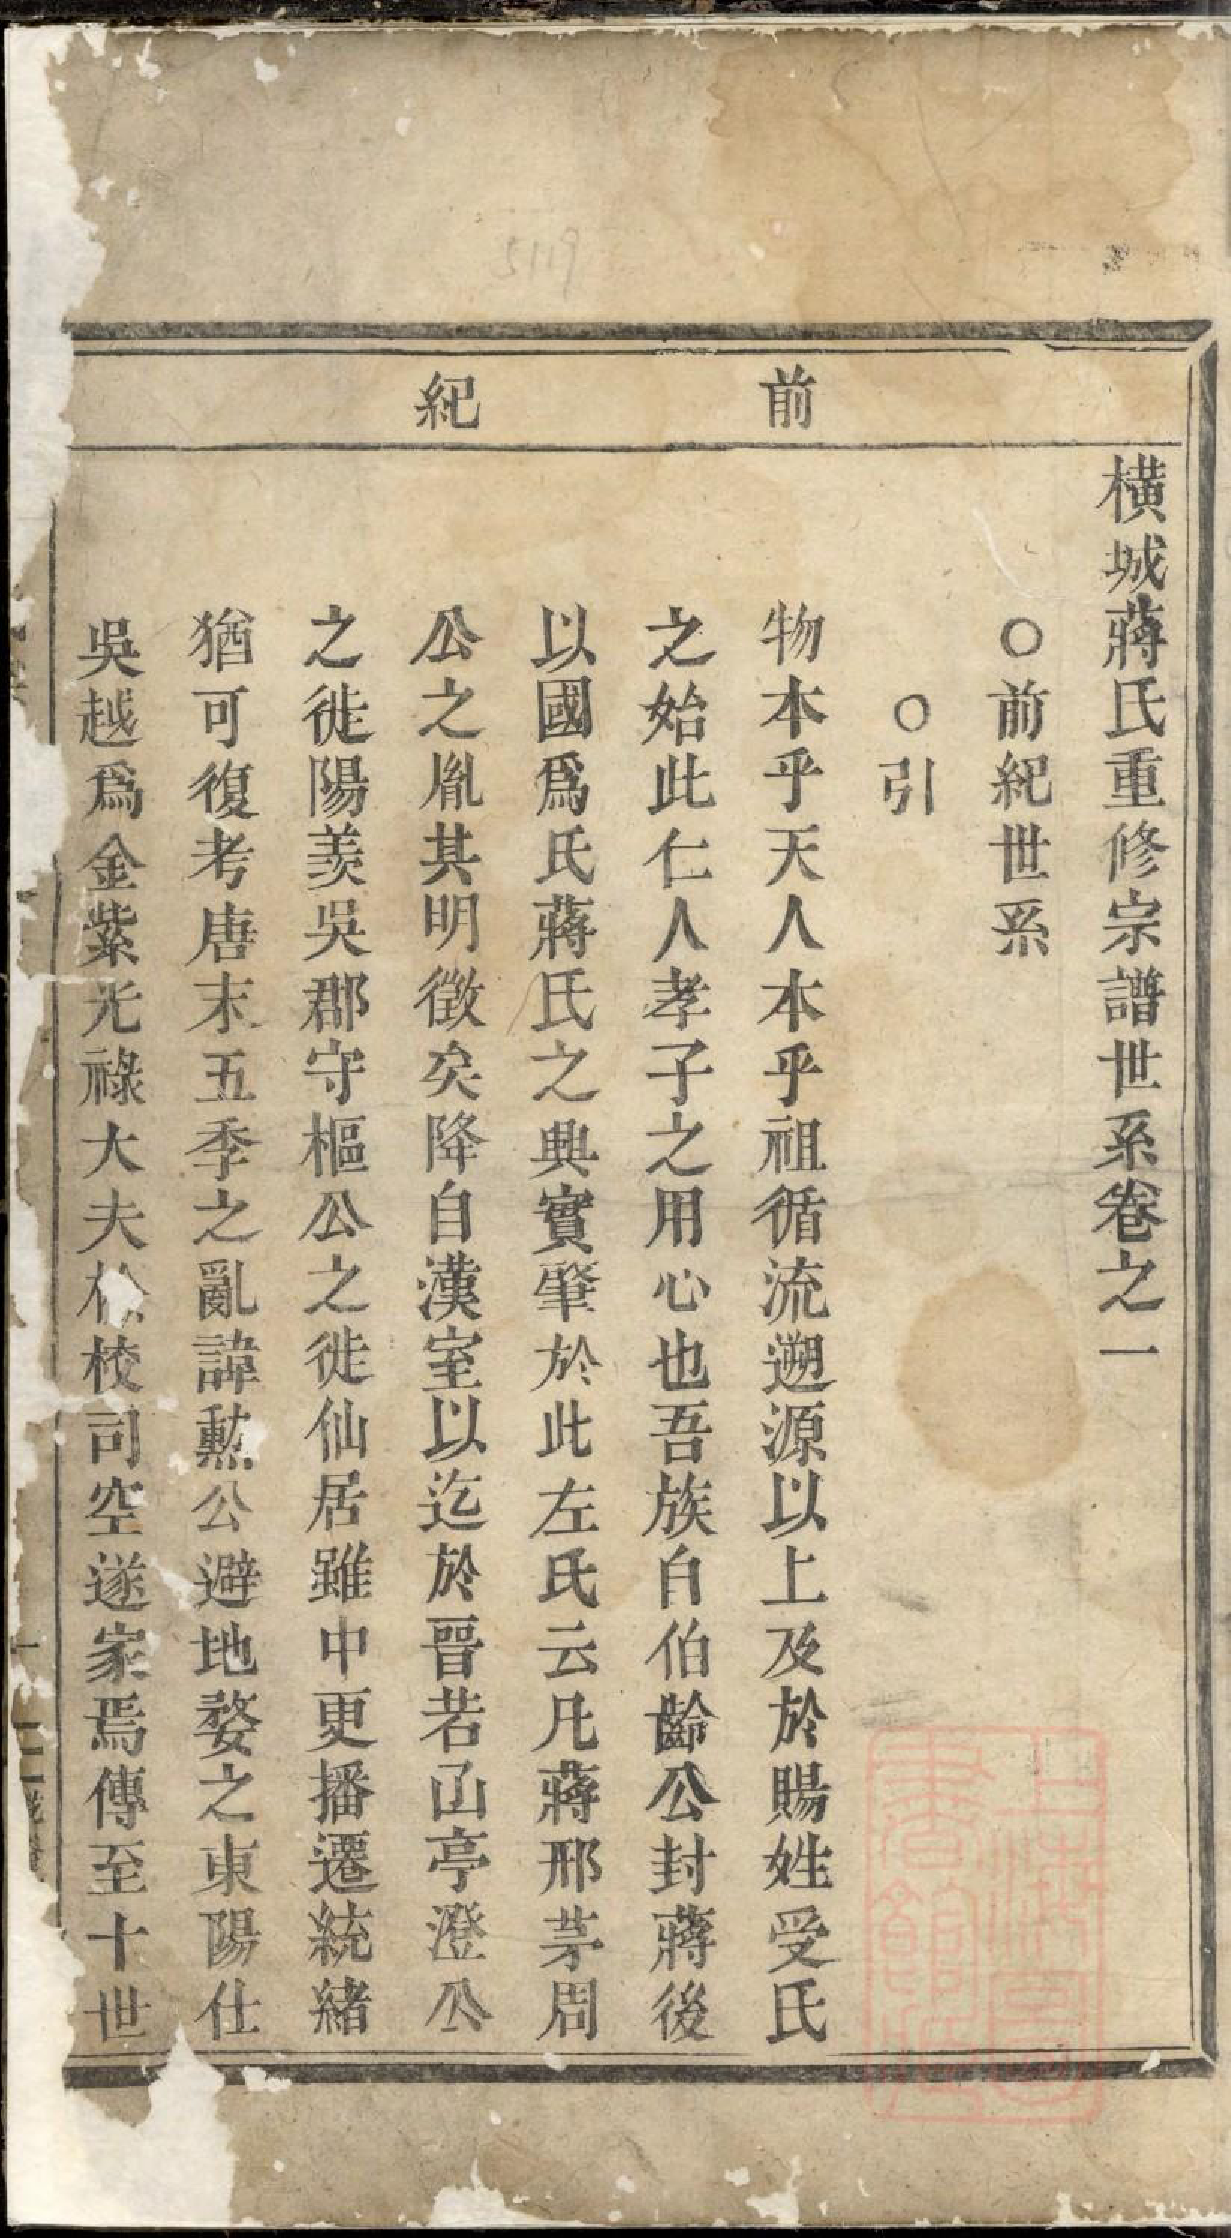 前紀
橫城蔣氏重修宗譜世系卷之一
〇前紀世系
〇引
物本乎天人本乎祖循流遡源以上及於賜姓受氏
之始此仁人孝子之用心也吾族自伯齡公封蔣後
以國爲氏蔣氏之典實肇於此左氏云凡蔣邢茅周
公之胤其明徵矣降自漢室以迄於晉若㕬亭澄公
之徙陽羨吳郡守樞公之徙仙居雖中更播遷統緒
猶可復考唐末五季之亂諱勲公避地婺之東陽仕
吳越爲金紫光祿大夫檢校司空遂家焉傳至十世
上海圖
書館藏
5119